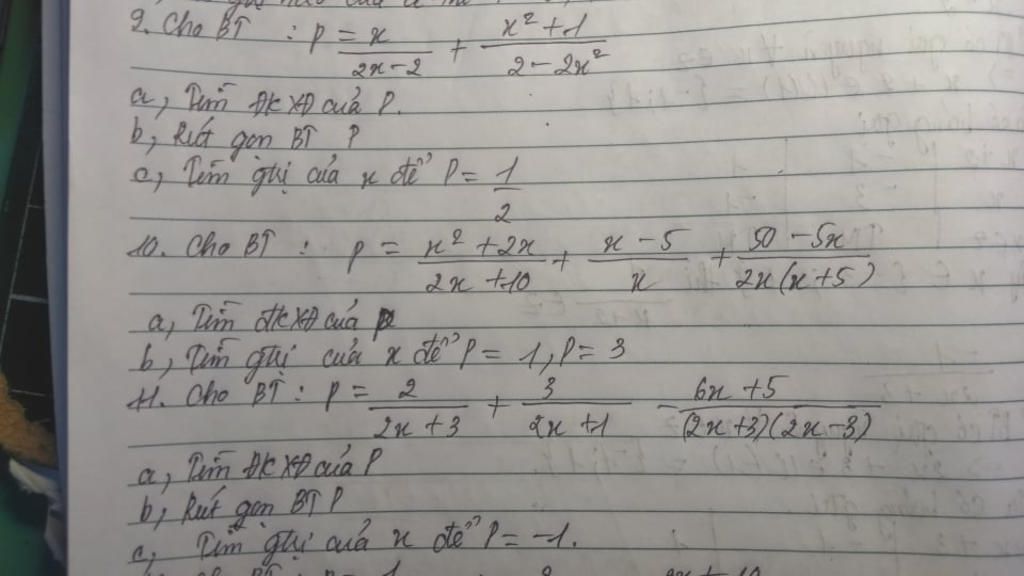 9. Cho BT : P = x/(2x-2) + (x²+1)/(2-2x²)
a, Tìm ĐKXĐ của P.
b, Rút gọn BT P
c, Tìm gtrị của x để P = 1/2
10. Cho BT : P = (x²+2x)/(2x+10) + (x-5)/x + (50-5x)/(2x(x+5))
a, Tìm ĐKXĐ của P
b, Tìm gtrị của x để P = 1, P = 3
11. Cho BT : P = 2/(2x+3) + 3/(2x+1) - (6x+5)/((2x+3)(2x-3))
a, Tìm ĐKXĐ của P
b, Rút gọn BT P
c, Tìm gtrị của x để P = -1.